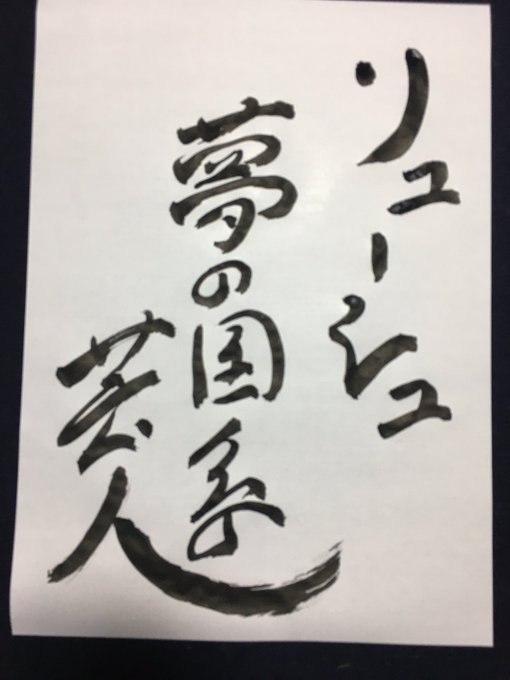 リューシュ
夢の国系
芸人